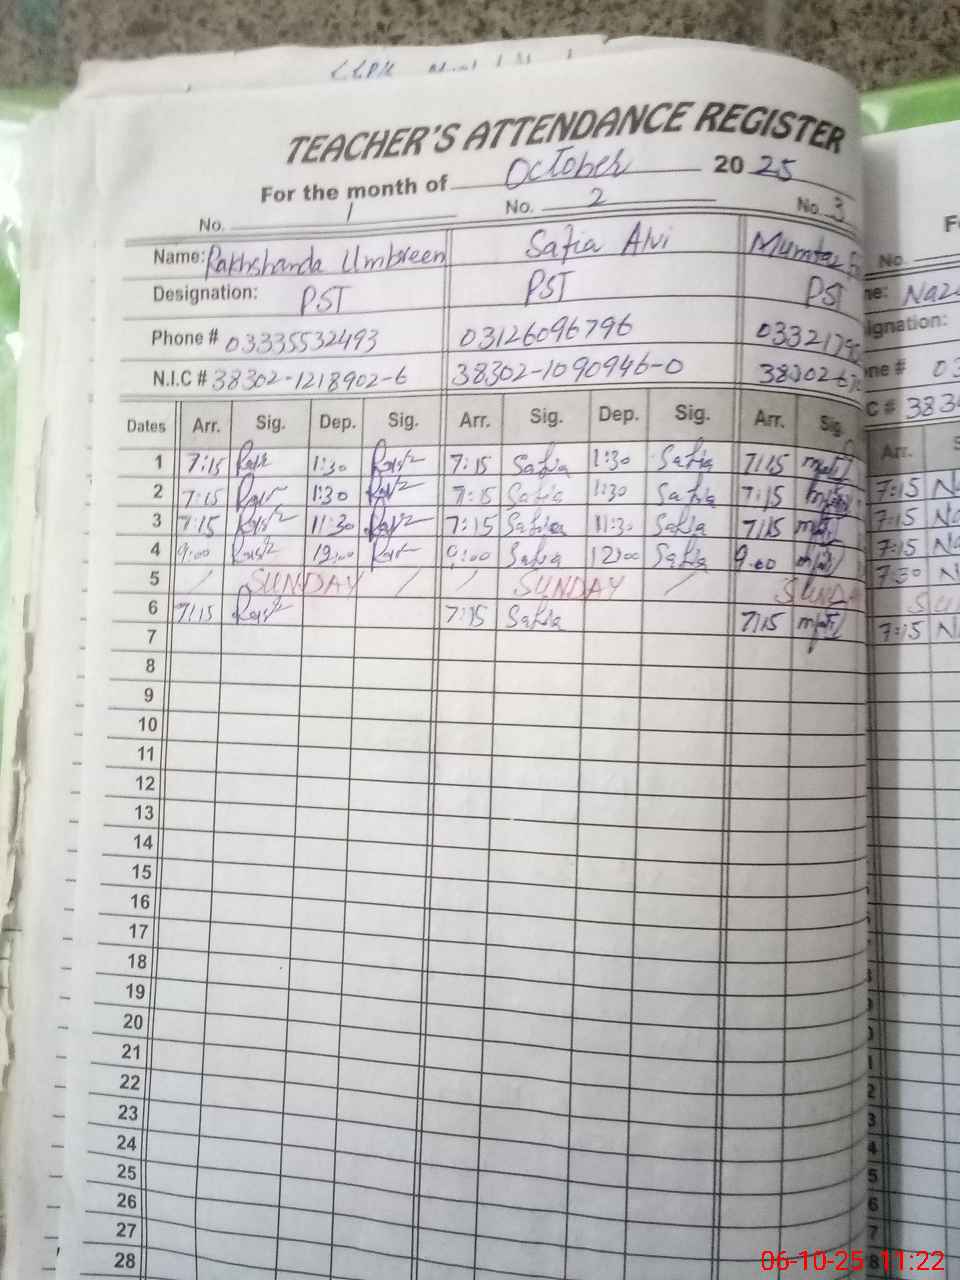 TEACHER'S ATTENDANCE REGISTER
For the month of October 2025
No. 1 No. 2 No. 3
Name: Rakhshanda Umbreen Safia Alvi Mumtaz
Designation: PST PST PST
Phone # 03335532493 03126096796 0332179
N.I.C # 38302-1218902-6 38302-1090946-0 38302-6
Dates Arr. Sig. Dep. Sig. Arr. Sig. Dep. Sig. Arr. Sig.
1 7:15 1:30 7:15 Safia 1:30 Safia 7:15
2 7:15 1:30 7:15 Safia 1:30 Safia 7:15
3 7:15 11:30 7:15 Safia 11:30 Safia 7:15
4 9:00 12:00 9:00 Safia 12:00 Safia 9:00
5 / SUNDAY / / SUNDAY / SUNDA
6 7:15 7:15 Safia 7:15
7
8
9
10
11
12
13
14
15
16
17
18
19
20
21
22
23
24
25
26
27
28
No.
me: Naz
signation:
one # 03
C # 383
Arr. S
7:15 Na
7:15 Na
7:15 Na
7:30 N
SU
7:15 N
06-10-25 11:22